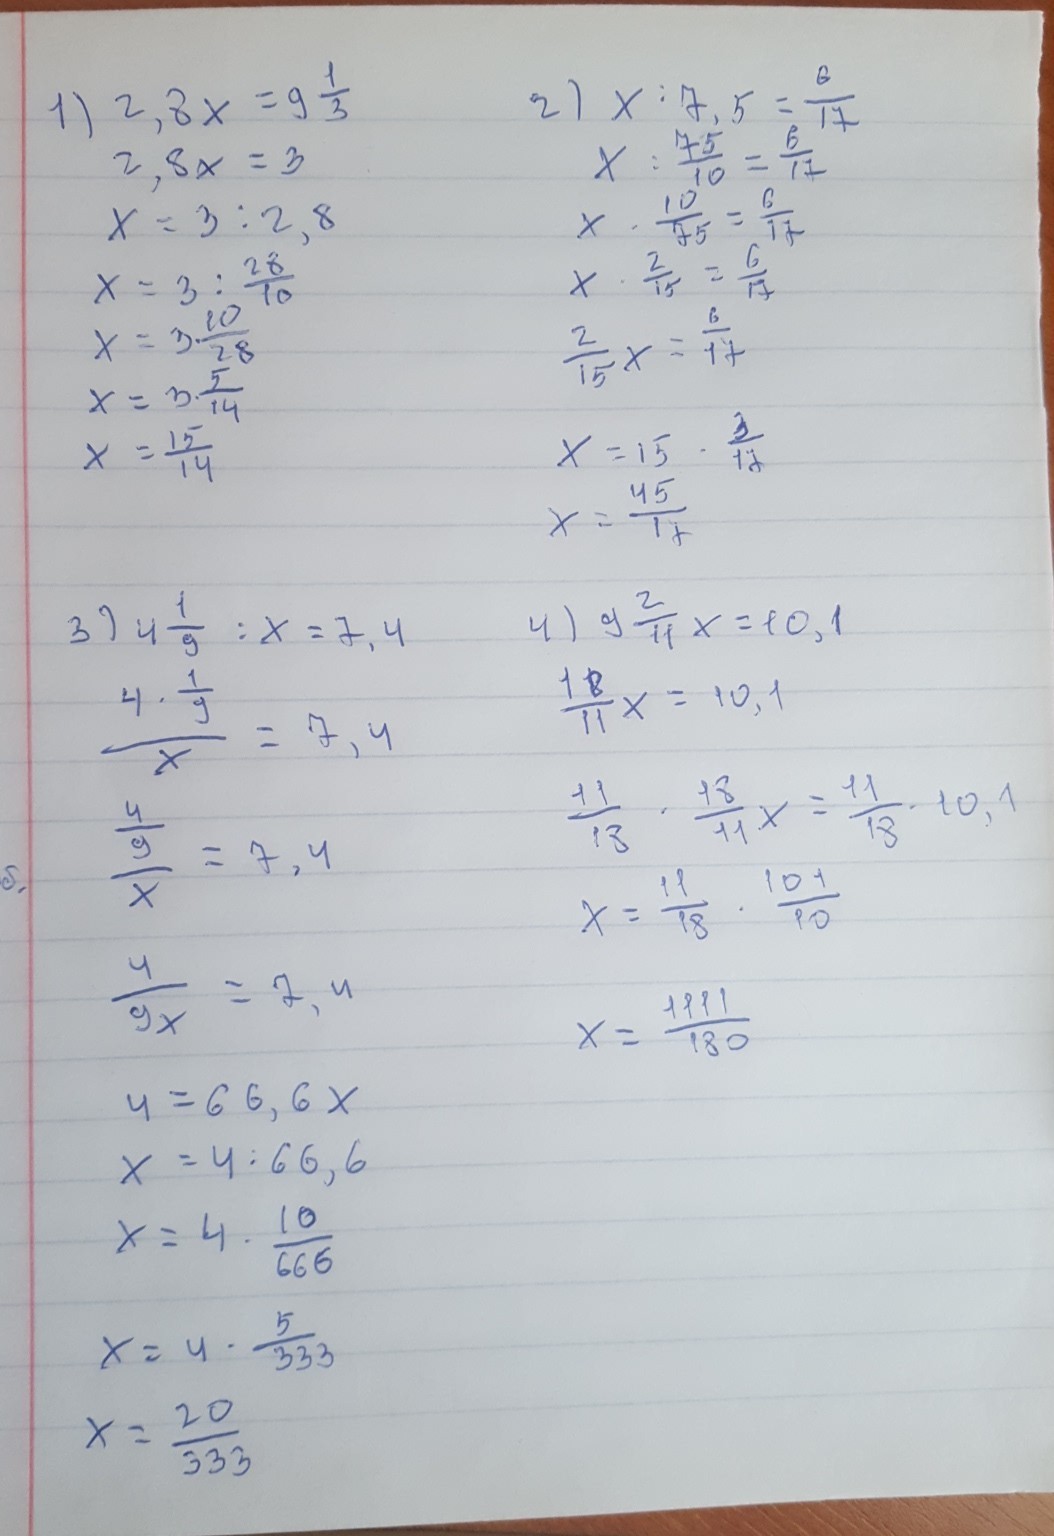 1) 2,8x = 9 1/3
2,8x = 3
x = 3 : 2,8
x = 3 : 28/10
x = 3 · 10/28
x = 3 · 5/14
x = 15/14
2) x : 7,5 = 6/17
x : 75/10 = 6/17
x · 10/75 = 6/17
x · 2/15 = 6/17
2/15 x = 6/17
x = 15 · 3/17
x = 45/17
3) 4 1/9 : x = 7,4
(4 · 1/9)/x = 7,4
(4/9)/x = 7,4
4/9x = 7,4
4 = 66,6x
x = 4 : 66,6
x = 4 · 10/666
x = 4 · 5/333
x = 20/333
4) 9 2/11 x = 10,1
18/11 x = 10,1
11/18 · 18/11 x = 11/18 · 10,1
x = 11/18 · 101/10
x = 1111/180